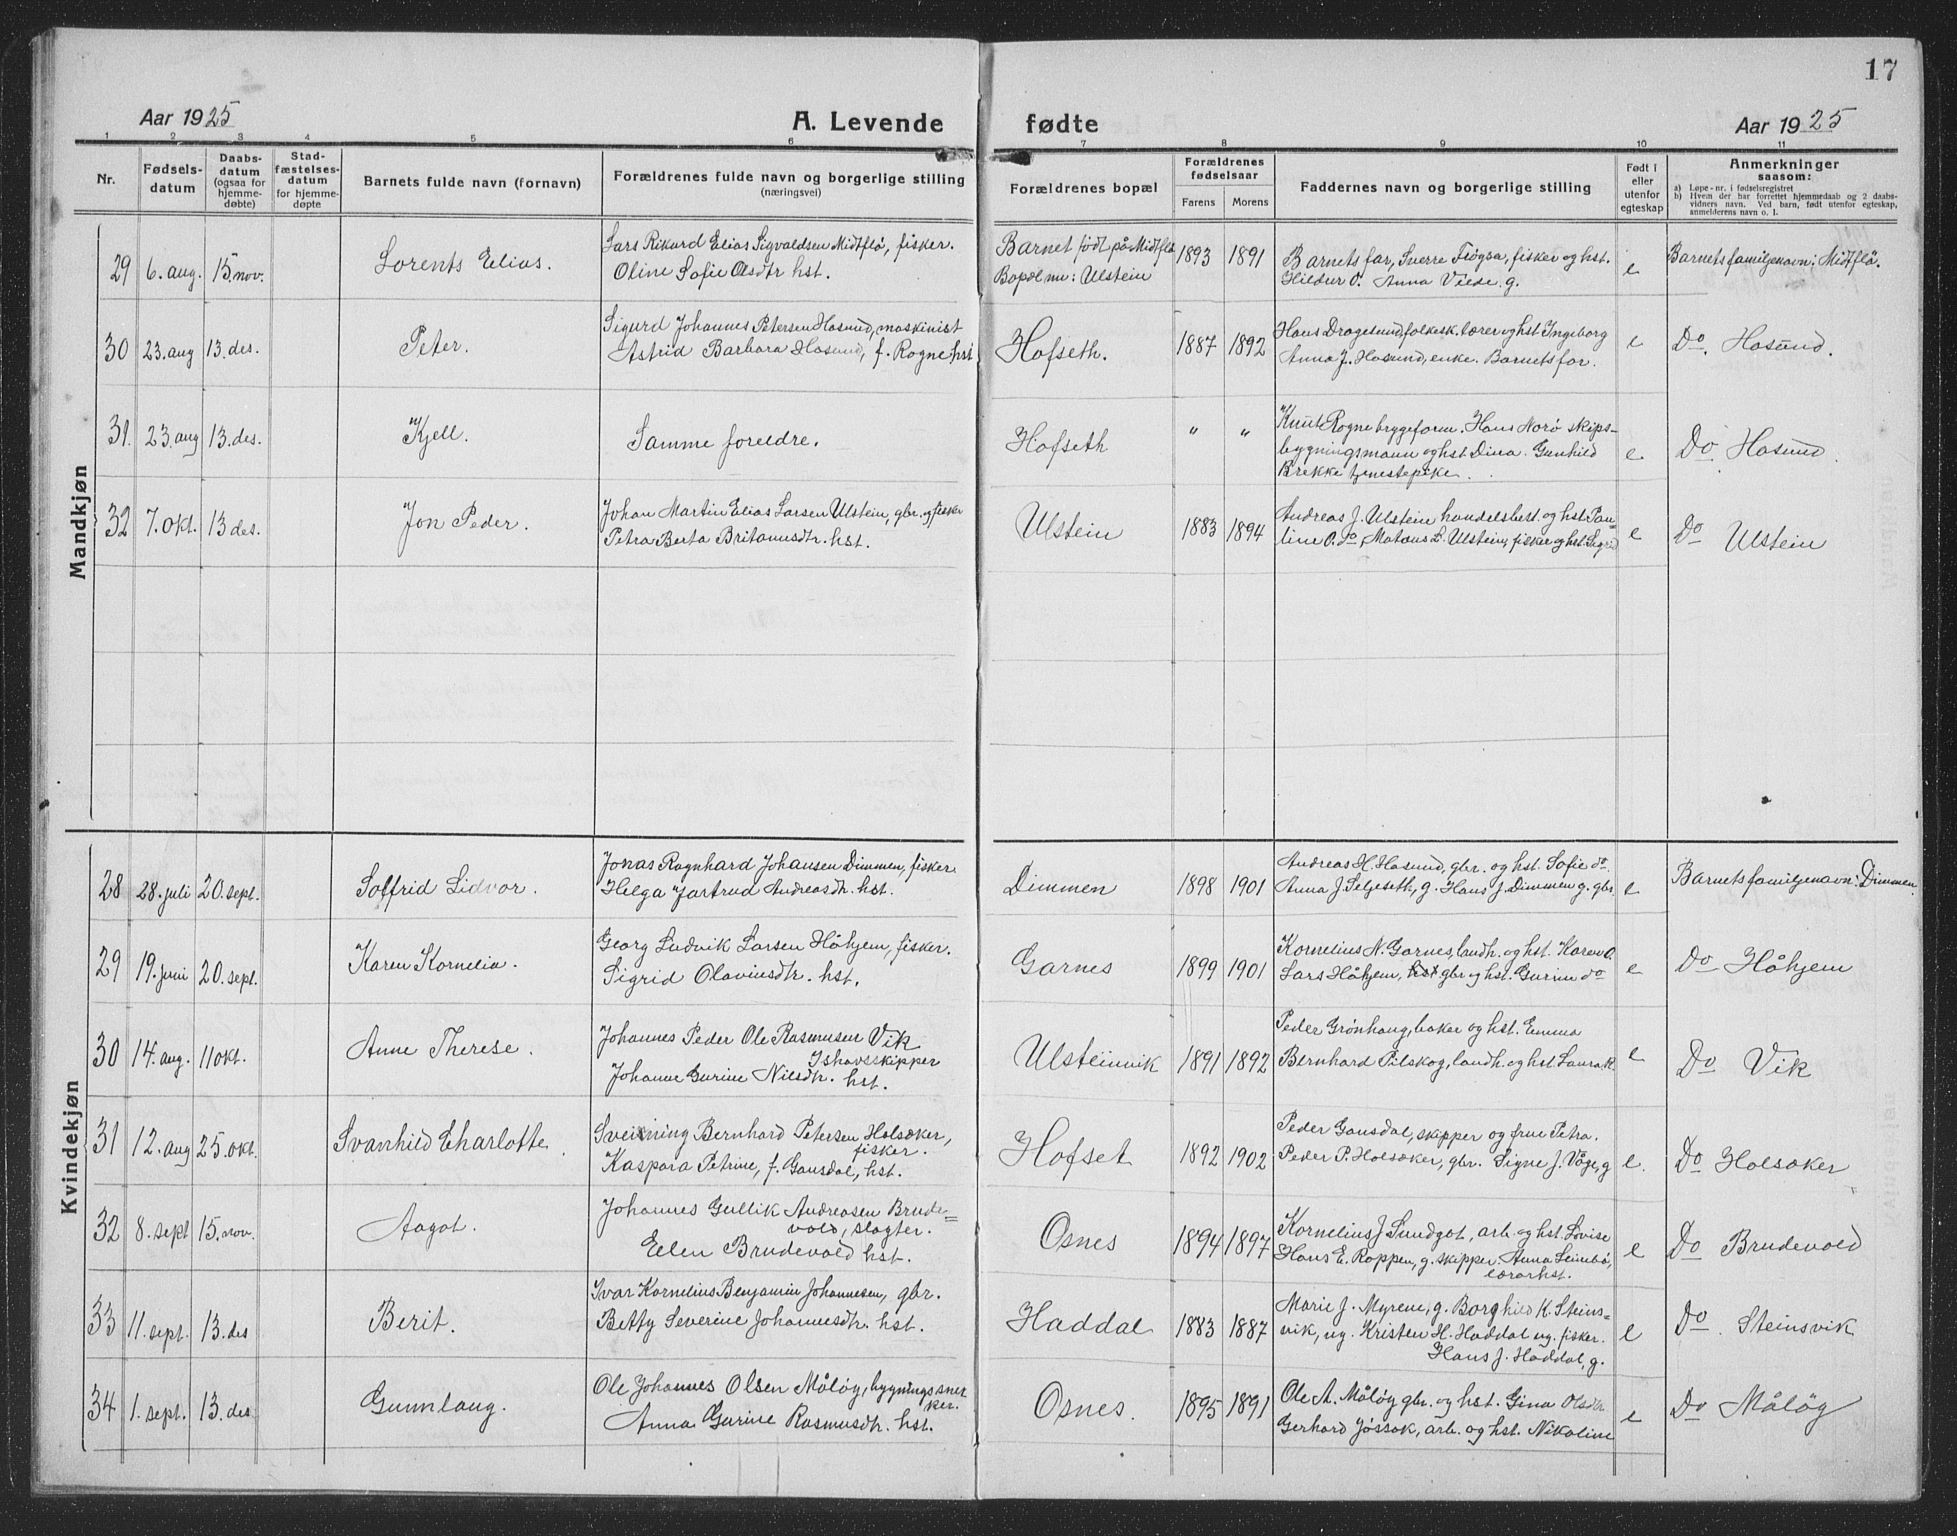 17
Aar 1925
A. Levende fødte
Aar 1925
1 2 3 4 5 6 7 8 9 10 11
Nr.
Fødsels-
datum
Daabs-
datum
(ogsaa for
hjemme-
døbte)
Stad-
fæstelses-
datum
for hjemme-
døpte
Barnets fulde navn (fornavn)
Forældrenes fulde navn og borgerlige stilling
(næringsvei)
Forældrenes bopæl
Forældrenes
fødselsaar
Farens Morens
Faddernes navn og borgerlige stilling
Født i
eller
utenfor
egteskap
Anmerkninger
saasom:
a) Løpe-nr. i fødselsregistret
b) Hvem der har forrettet hjemmedaab og 2 daabs-
vidners navn. Ved barn, født utenfor egteskap,
anmelderens navn o. l.
Mandkjøn
29 6. aug. 15. nov. Lorents Elias.
Lars Rikard Elias Sigvaldsen Midtflø, fisker.
Oline Sofie Olsdtr hst.
Barnet født på Midtflø
Bopæl nu: Ulstein
1893 1891
Barnets far, Sverre Fløgsa, fisker og hst.
Hildur O. Anna Velde g.
e
Barnets familjenavn: Midtflø.
30 23. aug 13. des. Peter.
Sigurd Johannes Petersen Hasund, maskinist
Astrid Barbara Hasund, f. Rogne hst
Hofseth.
1887 1892
Hans Dragesund folkesk.lærer og hst Ingeborg
Anna J. Hasund, enke. Barnets far.
e
Do. Hasund.
31. 23 aug 13. des. Kjell.
Samme foreldre.
Hofseth
" "
Knut Rogne bryggeform. Hans Norø skips-
bygningsmann og hst Dina. Gunhild
Brekke tjenestepike.
e
Do. Hasund.
32 7. okt. 13 des. Jon Peder.
Johan Martin Elias Larsen Ulstein, gbr. og fisker
Petra Berta Britanusdtr. hst.
Ulstein
1883 1894
Andreas J. Ulstein handelsbest. og hst Pau-
line O. do, Mataus L. Ulstein, fisker og hst. Sigrid
e
Do Ulstein
Kvindekjøn
28 28. juli 20. sept. Solfrid Lidvor.
Jonas Ragnhard Johansen Dimmen, fisker
Helga Jartrud Andreasdtr. hst.
Dimmen
1898 1901
Andreas H. Hasund, gbr. og hst. Sofie do.
Anna J. Seljeseth, g. Hans J. Dimmen g. gbr.
e
Barnets familjenavn: Dimmen.
29 19. juni 20. sept. Karen Kornelia.
Georg Ludvik Larsen Håhjem, fisker.
Sigrid Olaviusdtr. hst.
Garnes
1899 1901
Kornelius N. Garnes, landh. og hst. Karen O.
Lars Håhjem, gbr og hst. Gurine do
e
Do Håhjem
30 14. aug. 11 okt. Anne Therese.
Johannes Peder Ole Rasmussen Vik
Ishavsskipper
Johanne Gurine Nilsdtr. hst.
Ulsteinvik
1891 1892
Peder Grønhaug, baker og hst. Emma
Bernhard Pilskog, landh. og hst. Laura K.
e
Do Vik
31 12. aug 25. okt. Svanhild Charlotte.
Sveinung Bernhard Petersen Holsøker,
fisker.
Kaspara Petrine, f. Gansdal, hst.
Hofset
1892 1902
Peder Gansdal, skipper og frue Petra.
Peder P. Holsøker, gbr. Signe J. Våge, g
e.
Do Holsøker
32 8. sept 15. nov. Aagot.
Johannes Gullik Andreasen Brude=
vold, slagter.
Ellen Brudevold hst.
Osnes
1894 1897
Kornelius J Sundgot, arb. og hst. Lovise
Hans E. Roppen, g. skipper. Anna Leinebø,
lærarhst.
e
Do Brudevold
33 11. sept. 13. des Berit.
Ivar Kornelius Benjamin Johannesen, gbr.
Betty Severine Johannesdtr. hst.
Haddal
1883 1887
Marie J. Myrene, g. Borghild K. Steins-
vik, ug. Kristen H. Haddal ug. fisker.
Hans J. Haddal, g.
e
Do. Steinsvik
34 1. sept. 13. des Gunnlaug.
Ole Johannes Olsen Måløy, bygningssnek
ker.
Anna Gurine Rasmusdtr. hst.
Osnes.
1895 1891
Ole A. Måløy gbr. og hst. Gina Olsdtr.
Gerhard Jøssok, arb. og hst. Nikoline
e
Do Måløy